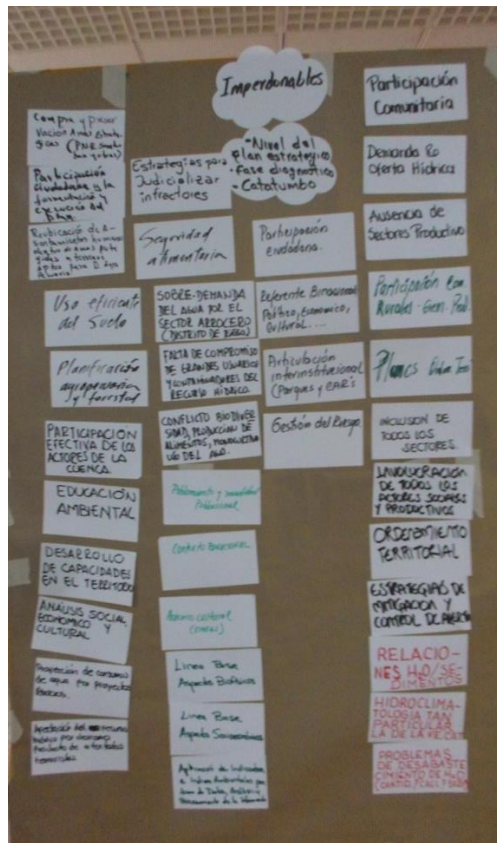 Imperdonables
- Nivel del
plan estratégico
- Fase diagnostico
- Catatumbo
Compra y
vacion Areas
gicas
Participación
ciudadana y la
formulación y
ejecución del
Plan
Reubicación de A-
sentamientos humanos
Uso eficiente
del Suelo
Planificación
agropecuaria
y forestal
PARTICIPACIÓN
EFECTIVA DE LOS
ACTORES DE LA
CUENCA
EDUCACIÓN
AMBIENTAL
DESARROLLO
DE CAPACIDADES
EN EL TERRITORIO
ANÁLISIS SOCIAL,
ECONOMICO Y
CULTURAL
Proyección de consumo
de agua por proyectos
Afectación del recurso
hídrico por
Producto de
Estrategias para
Judicializar
infractores
Seguridad
alimentaria
SOBRE-DEMANDA
DEL AGUA POR EL
SECTOR ARROCERO
(DISTRITO DE RIEGO)
FALTA DE COMPROMISO
DE GRANDES USUARIOS
Y CONTAMINADORES DEL
RECURSO HÍDRICO
CONFLICTO BIODIVER
SIDAD, PRODUCCION DE
ALIMENTOS, MONOCULTIVO
USO DEL AGUA.
Poblamiento y
Poblacional
Contexto Binacional
Linea Base
Aspectos Biofísicos
Linea Base
Aspectos Socioeconómicos
Aplicación de Indicadores
e Indices Ambientales por
Participación
ciudadana.
Referente Binacional
Político, Economico,
Cultural ....
Articulación
interinstitucional
(Parques y CAR's
Gestión del Riesgo
Participación
Comunitaria
Demanda
Oferta Hídrica
Ausencia de
Sectores Productivo
Participación Com
Planes
INCLUSION DE
TODOS LOS
SECTORES.
INVOLUCRACIÓN
DE TODOS LOS
ACTORES SOCIALES
Y PRODUCTIVOS
ORDENAMIENTO
TERRITORIAL
ESTRATEGIAS DE
MITIGACION Y
CONTROL DE
RELACIO-
NES H2O/SE-
DIMENTOS
HIDROCLIMA-
TOLOGIA TAN
PARTICULAR
LA DE LA
PROBLEMAS
DE DESABASTE
CIMIENTO DE H2O